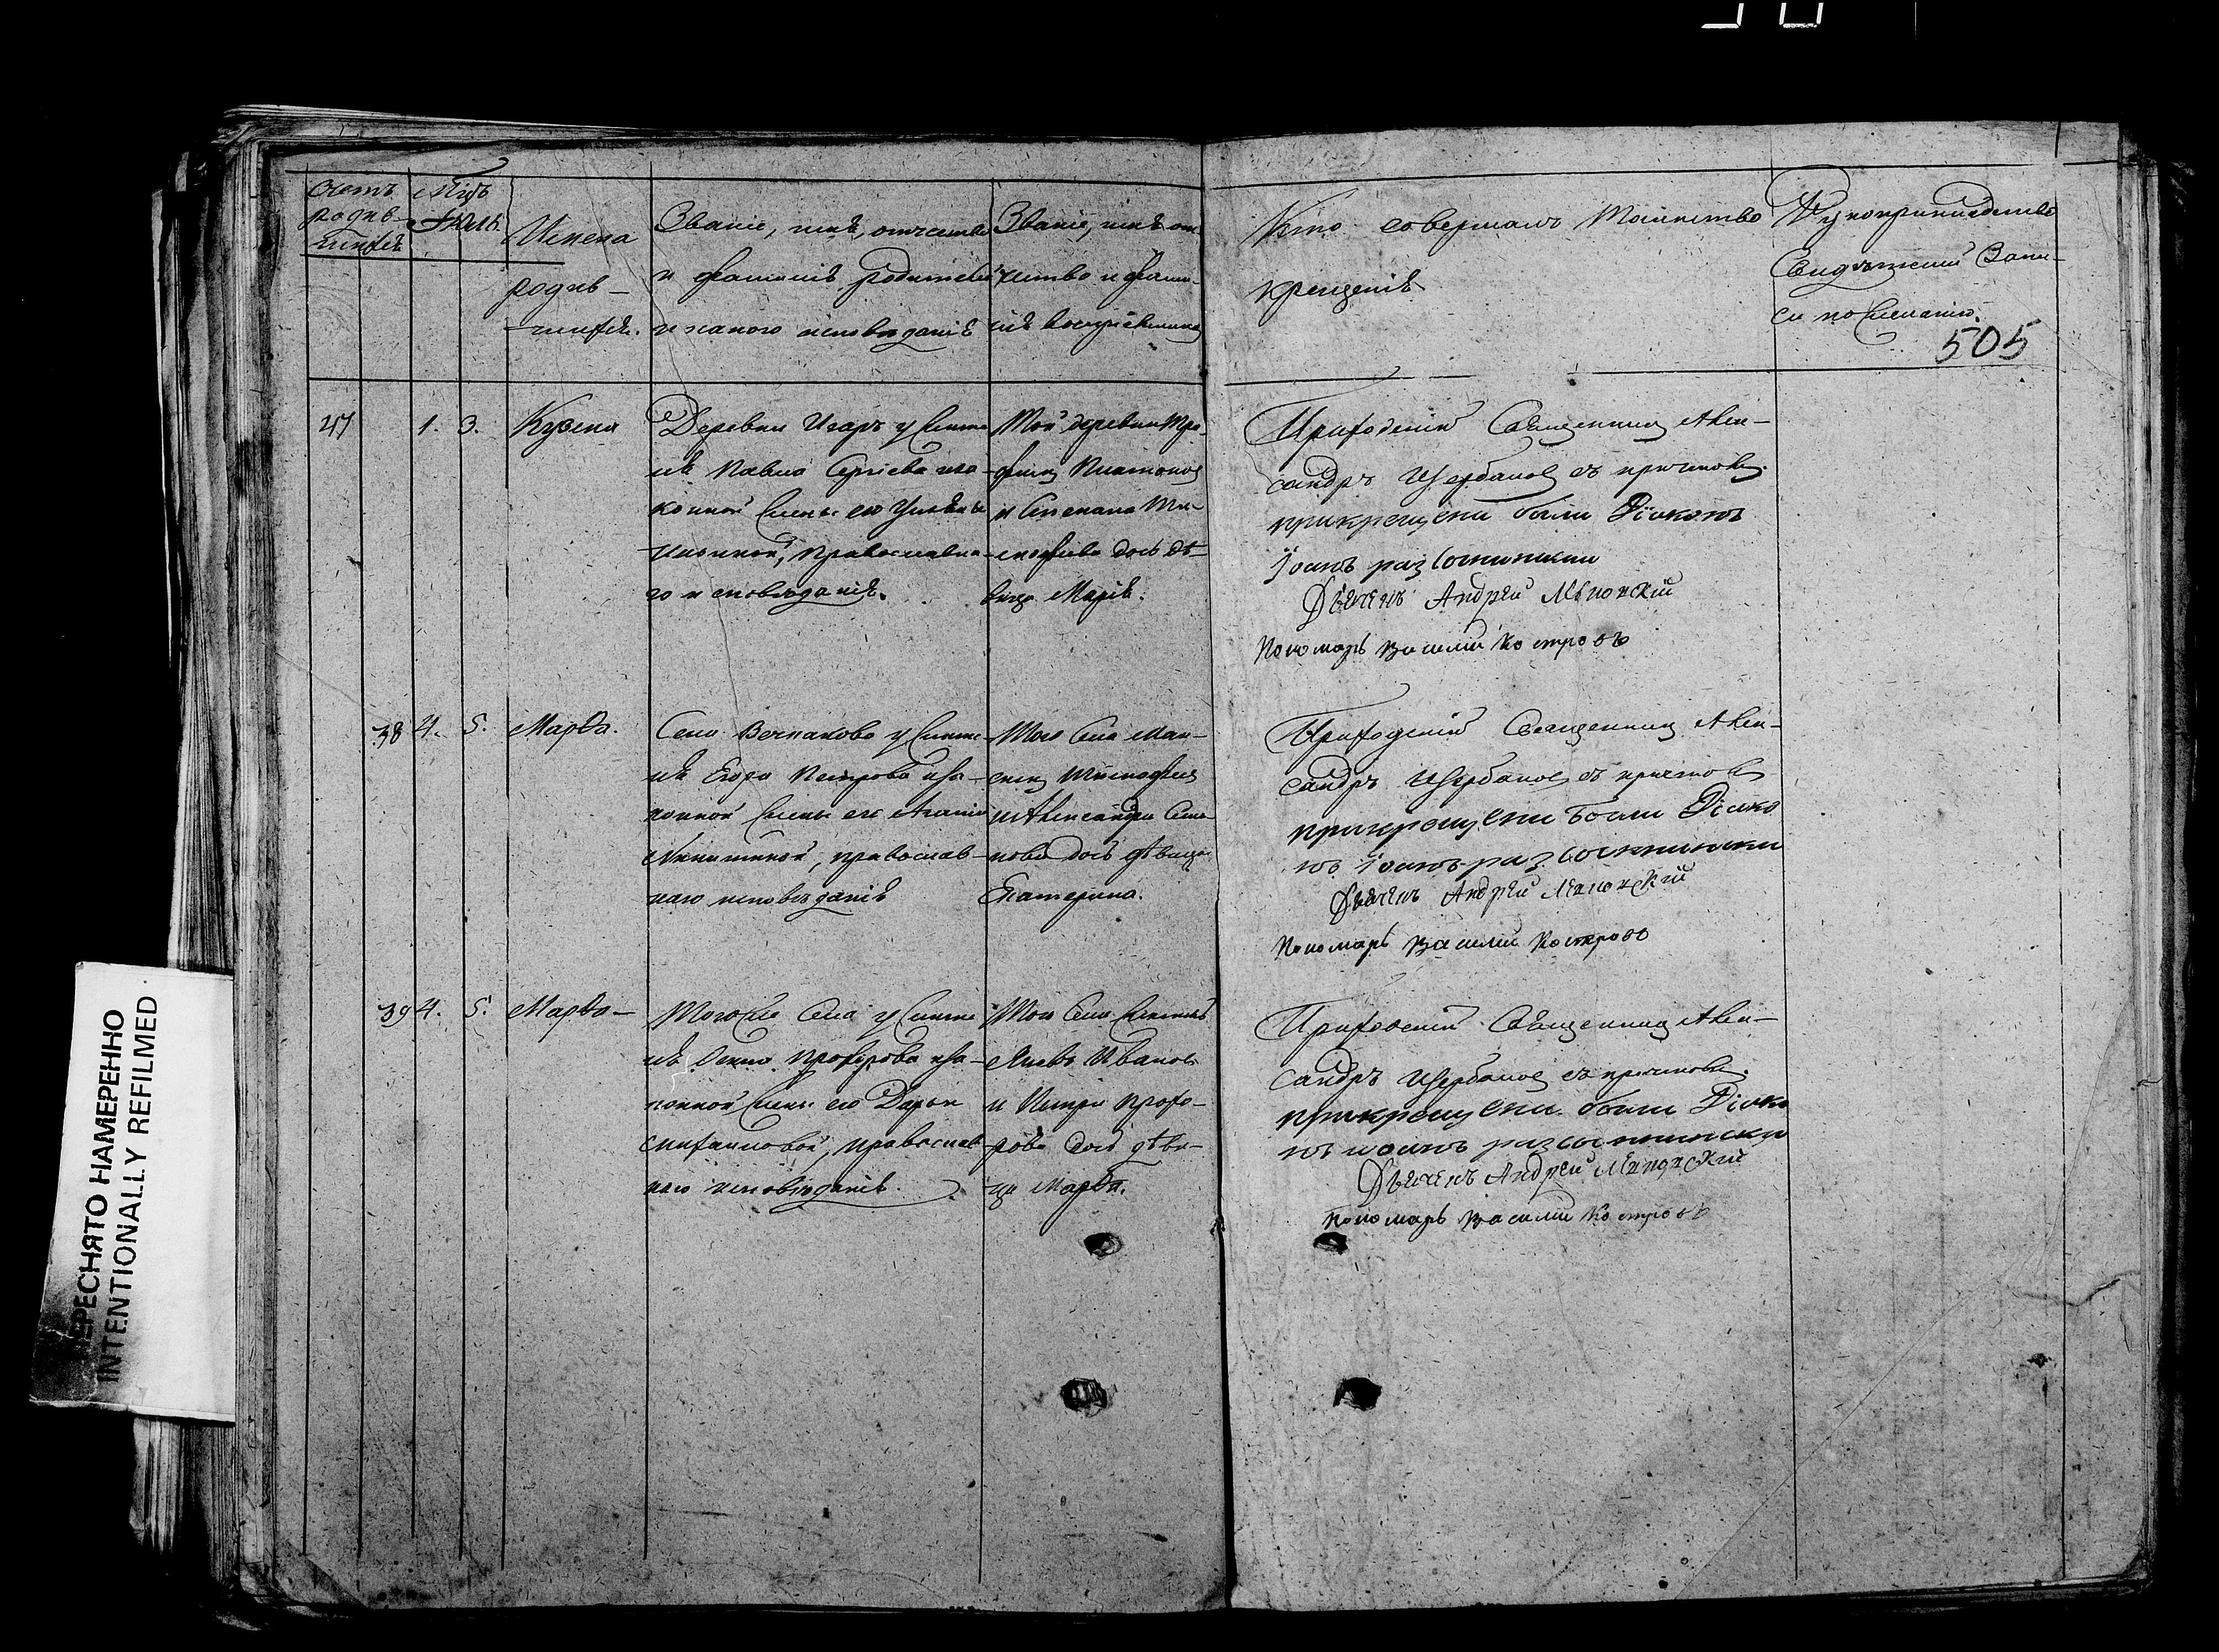 Счетъ родив-
шихся
Мць
Іюль.
Имена
родив-
шихся.
Званіе, имя, отчество
и фамилія родителей
и какого исповѣданія
Званіе, имя от-
чество и фами-
лія воспріемника
Кто совершалъ таинство
крещенія
Рукоприкладство
свидѣтелей запи-
си по желанію.
505
47
1. 3.
Кузма
Деревни Игаръ у
Павла Сергіева и за-
конной жены его Ульяны
православна-
го исповѣданія.
Той деревни Тро-
фимъ Платоновъ
и Степана Ти-
мофѣева дочь дѣ-
вица Марія.
Приходскій Священникъ Алек-
сандръ Щербаковъ съ причтомъ.
при крещеніи были Діяконъ
Іоаннъ
Дьячекъ Андрей
Пономарь Василій Костровъ
38 4. 5.
Марѳа.
Села у
Егора Петрова и за-
конной жены его
Никитиной, православ-
наго исповѣданія
Того села Мак-
симъ Тимофѣевъ
и Александра Семе-
нова дочь дѣвица
Екатерина.
Приходскій Священникъ Алек-
сандръ Щербаковъ съ причтомъ
при крещеніи были Діяко
нъ Іоаннъ
Дьячекъ Андрей
Пономарь Василій Костровъ
39 4. 5.
Марѳа
Тогоже Села у
Прохорова и за-
конной жены его Дарьи
Михайловой, православ-
наго исповѣданія.
Того Села
Яковъ Ивановъ
и Петра Прохо-
рова дочь дѣви-
ца Марѳа.
Приходскій Священникъ Алек-
сандръ Щербаковъ съ причтомъ.
при крещеніи были Діяко
нъ Иоаннъ
Дьячекъ Андрей
Пономарь Василій Костровъ
ПЕРЕСНЯТО НАМЕРЕННО
INTENTIONALLY REFILMED